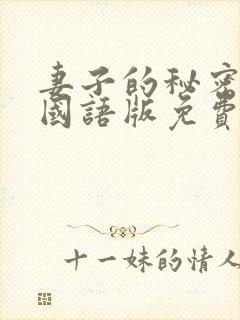 妻子的秘密
國語版免費
十一妹的情人